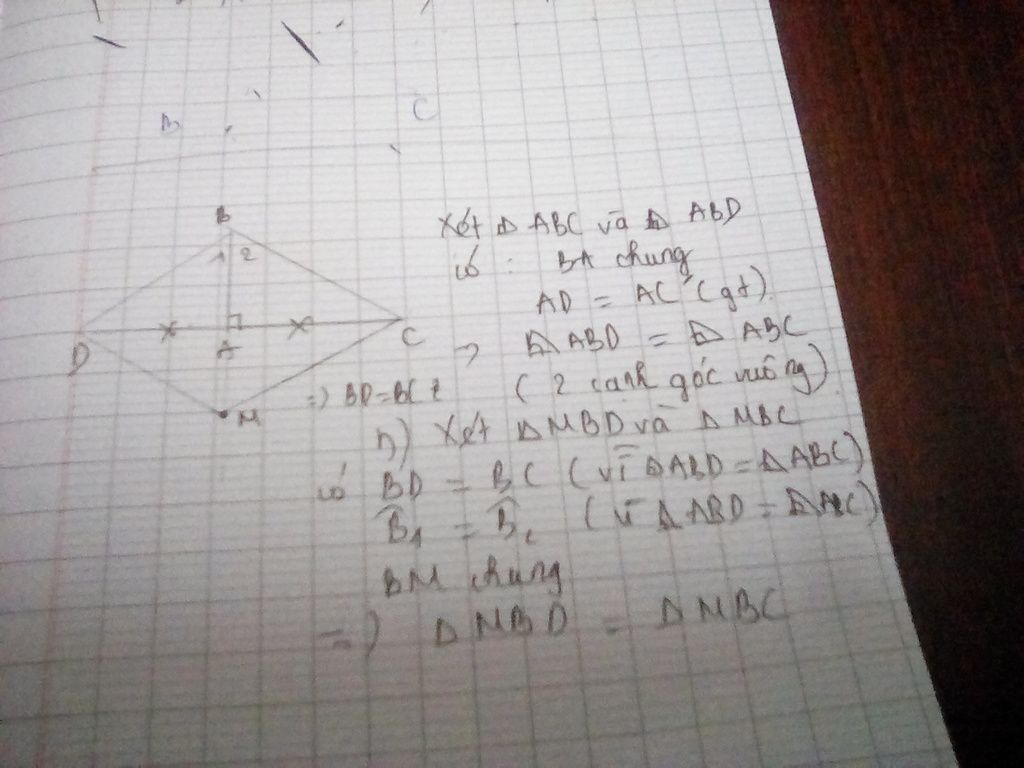 B C
B
2
D A C
M
Xét Δ ABC và Δ ABD
có : BA chung
AD = AC (gt)
=> Δ ABD = Δ ABC
=) BD = BC ( 2 cạnh góc vuông)
n) Xét Δ MBD và Δ MBC
có BD = BC (vì ΔABD = ΔABC)
B̂1 = B̂2 (vì Δ ABD = ΔABC)
BM chung
=) Δ MBD = Δ MBC